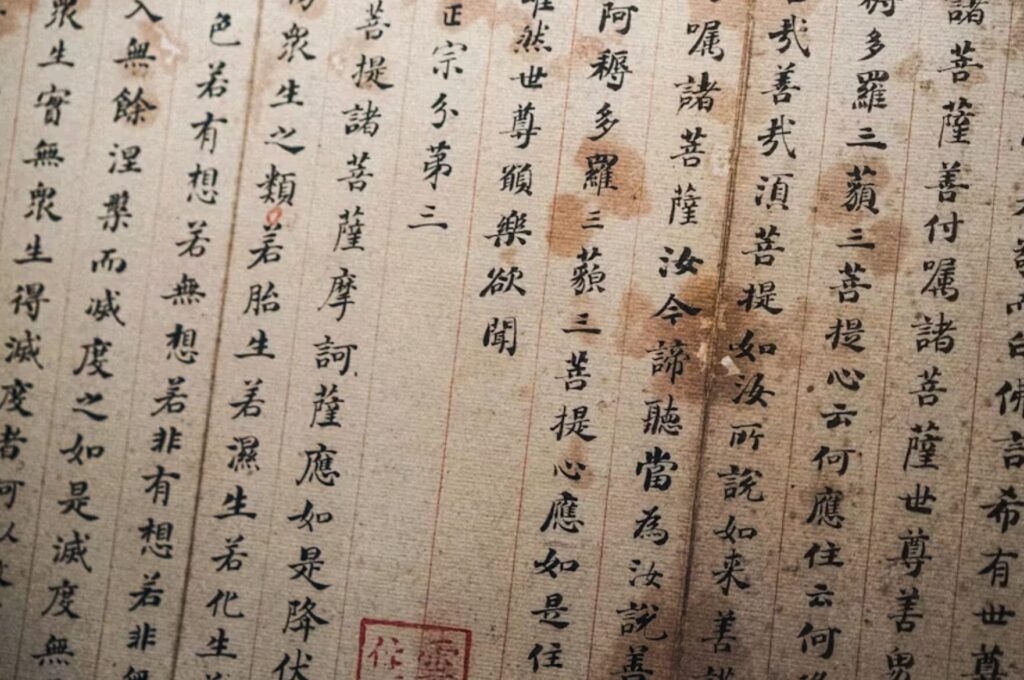 而白佛言希有世尊
諸菩薩善付囑諸菩薩世尊善男
耨多羅三藐三菩提心云何應住云何
哉善哉須菩提如汝所說如来善護
囑諸菩薩汝今諦聽當為汝說善
阿耨多羅三藐三菩提心應如是住
唯然世尊願樂欲聞
正宗分第三
菩提諸菩薩摩訶薩應如是降伏
衆生之類若胎生若濕生若化生
色若有想若無想若非有想若非
入無餘涅槃而滅度之如是滅度無
衆生實無衆生得滅度者何以